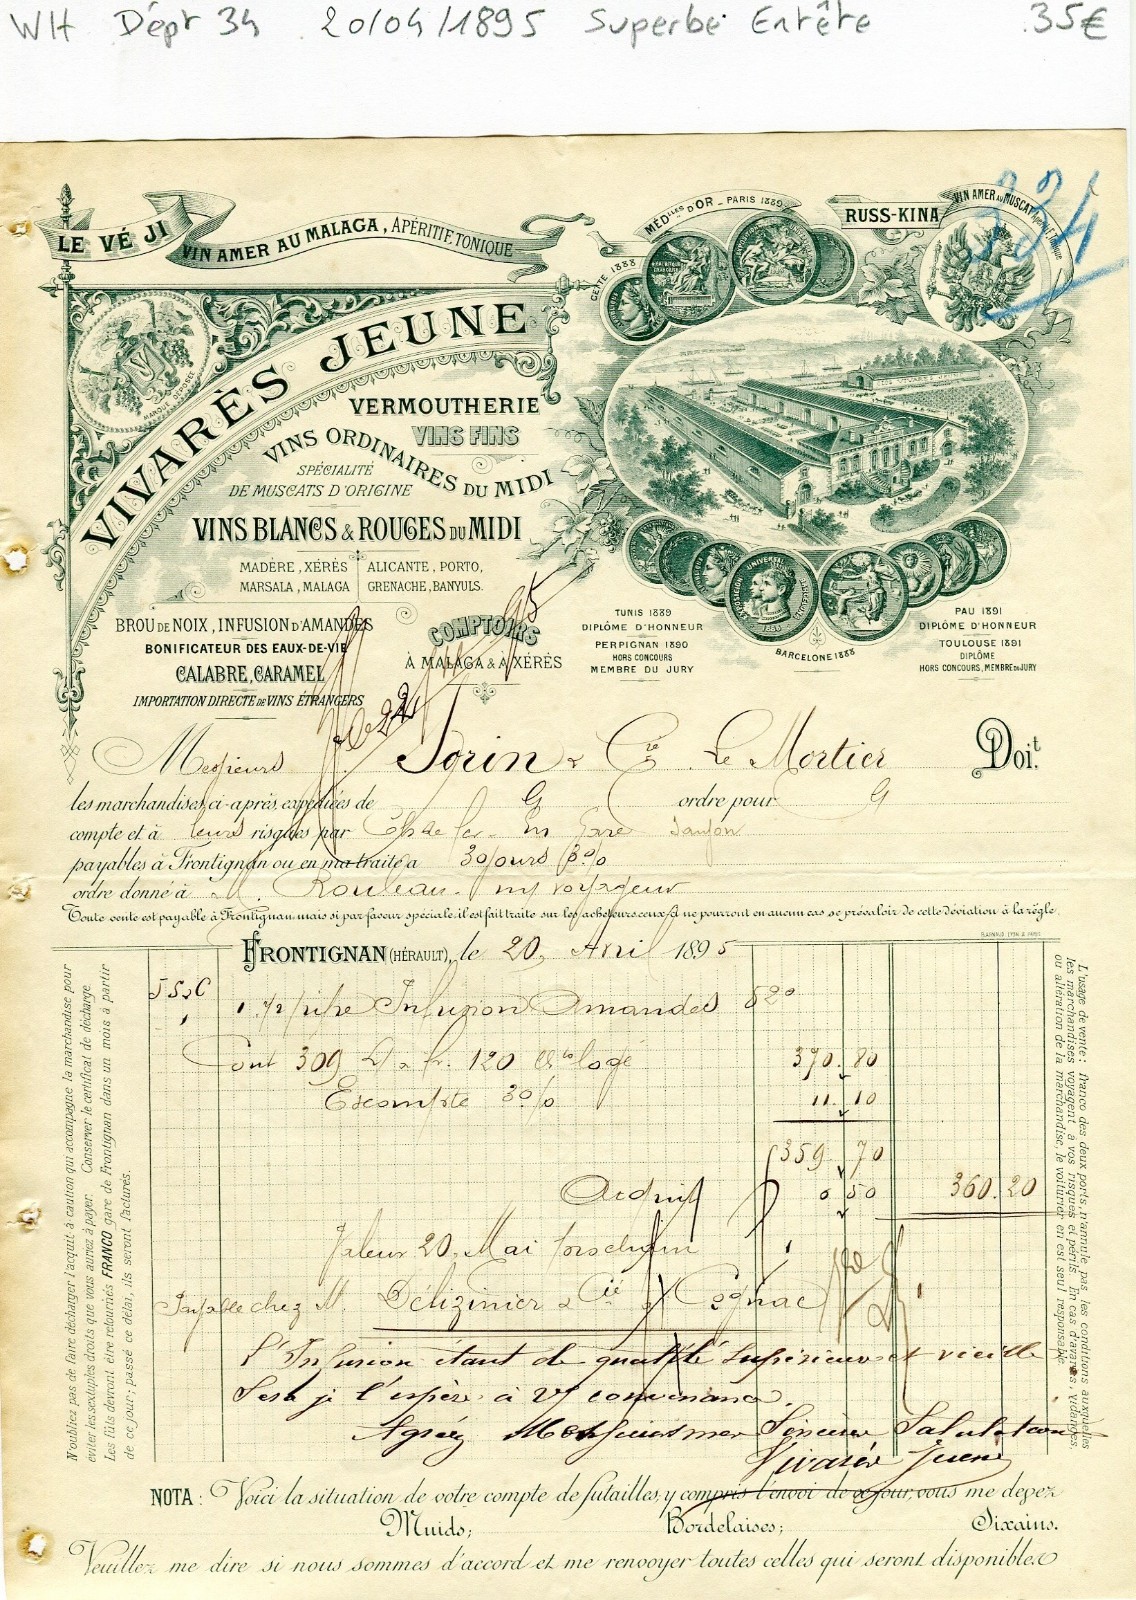 WH Dépt 34 20/04/1895 Superbe Entête 35€
334
LE VÉ JI
VIN AMER AU MALAGA, APÉRITIF TONIQUE
CETTE 1888
MÉDlles D'OR _ PARIS 1889
RUSS-KINA
VIN AMER AU MUSCAT
MARQUE DÉPOSÉE
VIVARÈS JEUNE
VERMOUTHERIE
VINS FINS
VINS ORDINAIRES DU MIDI
SPÉCIALITÉ
DE MUSCATS D'ORIGINE
VINS BLANCS & ROUGES DU MIDI
MADÈRE, XÉRÈS
MARSALA, MALAGA
ALICANTE, PORTO,
GRENACHE, BANYULS.
BROU DE NOIX, INFUSION D'AMANDES
BONIFICATEUR DES EAUX-DE-VIE
CALABRE, CARAMEL
IMPORTATION DIRECTE DE VINS ÉTRANGERS
COMPTOIRS
À MALAGA & À XÉRÈS
TUNIS 1889
DIPLÔME D'HONNEUR
PERPIGNAN 1890
HORS CONCOURS
MEMBRE DU JURY
EXPOSICION UNIVERSAL
BARCELONE 1888
PAU 1891
DIPLÔME D'HONNEUR
TOULOUSE 1891
DIPLÔME
HORS CONCOURS, MEMBRE DU JURY
Messieurs Jorin & Cie Le Mortier Doit.
les marchandises ci-après, expédiées de G ordre pour G
compte et à leurs risques par Ch. de fer en gare Saujon
payables à Frontignan ou en ma traite à 30 jours 3%
ordre donné à M. Rouleau my voyageur
Toute vente est payable à Frontignan mais si par faveur spéciale il est fait traite sur les acheteurs ceux-ci ne pourront en aucun cas se prévaloir de cette déviation à la règle.
FRONTIGNAN (HÉRAULT), le 20 Avril 1895
1 1/2 pipe Infusion Amandes 520
Cont 309 D à fr. 120 logé 370. 80
Escompte 3% 11. 10
359 70
Acquit 0 50 360. 20
Valeur 20 Mai prochain
Payable chez M. Délizinier & Cie à Cognac
L'Infusion étant de qualité supérieure et vieille
Sera je l'espère à vf convenance.
Agréez Messieurs mes Sincères Salutations
Vivarès Jeune
N'oubliez pas de faire décharger l'acquit-à-caution qui accompagne la marchandise pour
éviter les sextuples droits que vous auriez à payer. Conserver le certificat de décharge.
Les fûts devront être retournés FRANCO gare de Frontignan dans un mois à partir
de ce jour; passé ce délai, ils seront facturés.
L'usage de vente: franco des deux ports, n'annule pas les conditions auxquelles
les marchandises voyagent à vos risques et périls. En cas d'avaries, vidanges
ou altération de la marchandise, le voiturier en est seul responsable.
NOTA: Voici la situation de votre compte de futailles, y compris l'envoi de ce jour, vous me devez
Muids; Bordelaises; Sixains.
Veuillez me dire si nous sommes d'accord et me renvoyer toutes celles qui seront disponibles